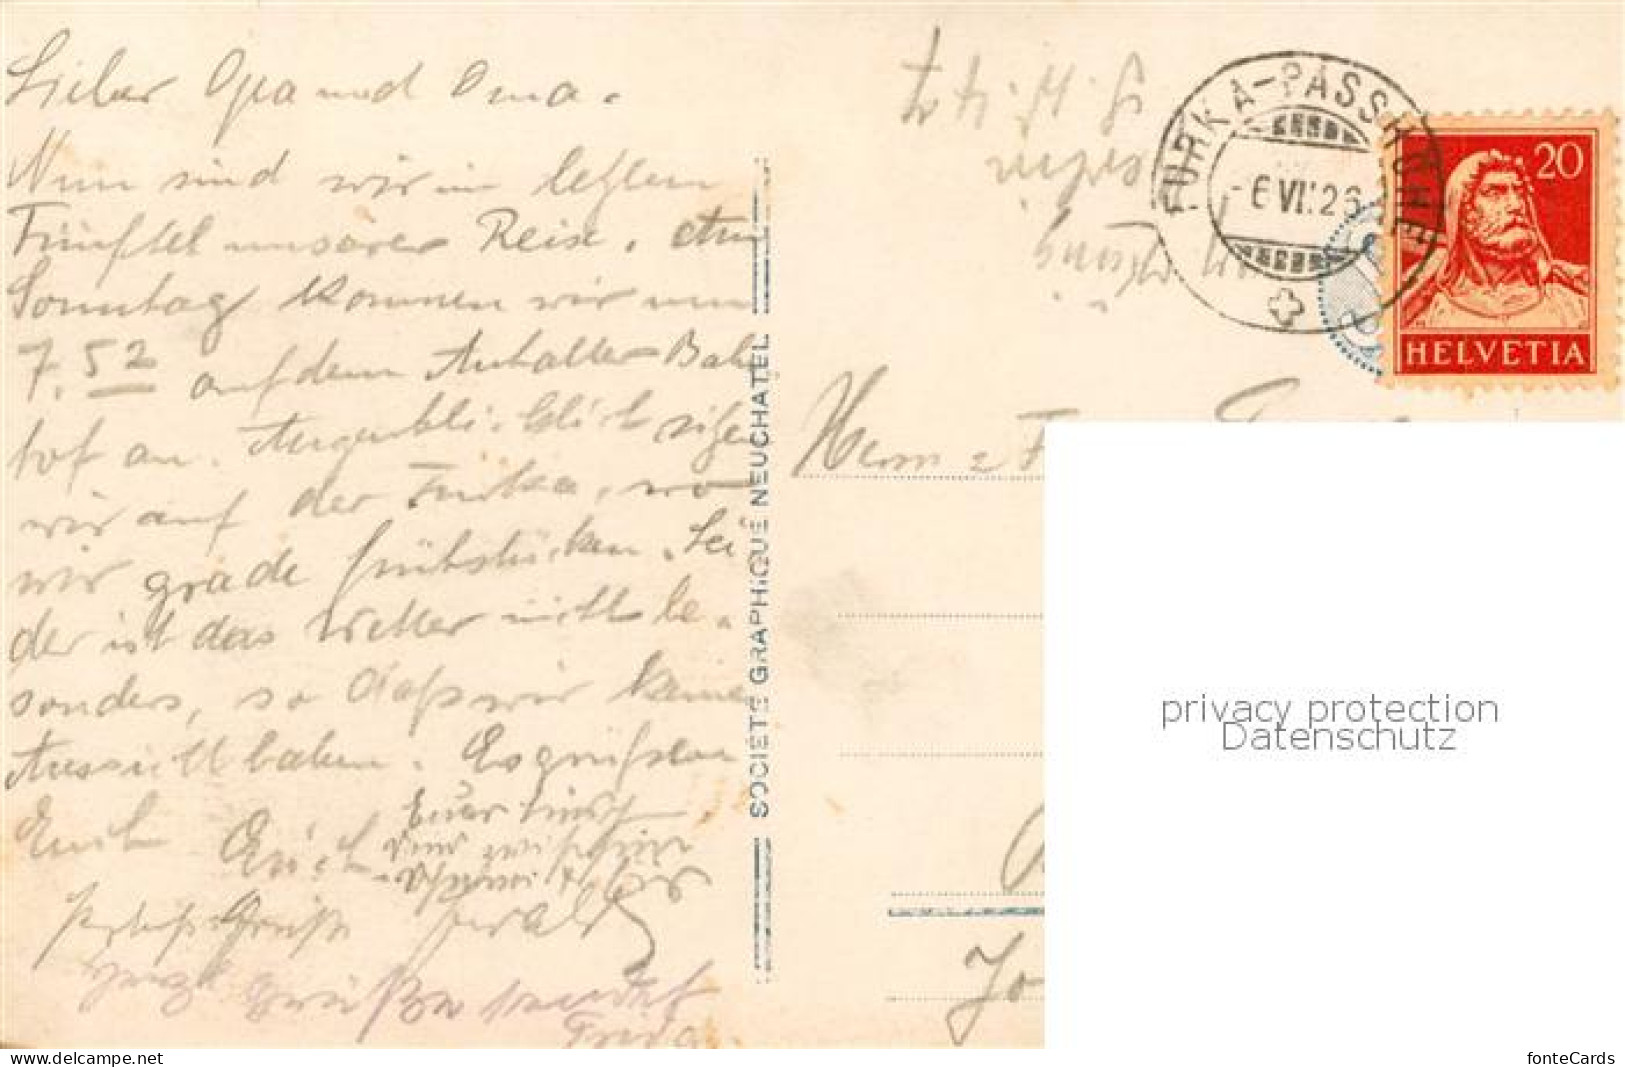 Lieber Opa und Oma.
Nun sind wir im letzten
Fünftel unserer Reise. Am
Sonntag kommen wir um
7.52 auf dem Anhalter Bahn
hof an. Augenblicklich sitzen
wir auf der Furka, wo
wir grade frühstücken. Lei
der ist das Wetter nicht be-
sonders, so daß wir keine
Aussicht haben. Es grüßen
Euch Erich
Grüße
Grüße sendet
Frida
SOCIÉTÉ GRAPHIQUE NEUCHATEL
FURKA-PASSHÖHE
-6.VII.26
20
HELVETIA
Herrn
privacy protection
Datenschutz
www.delcampe.net
fonteCards